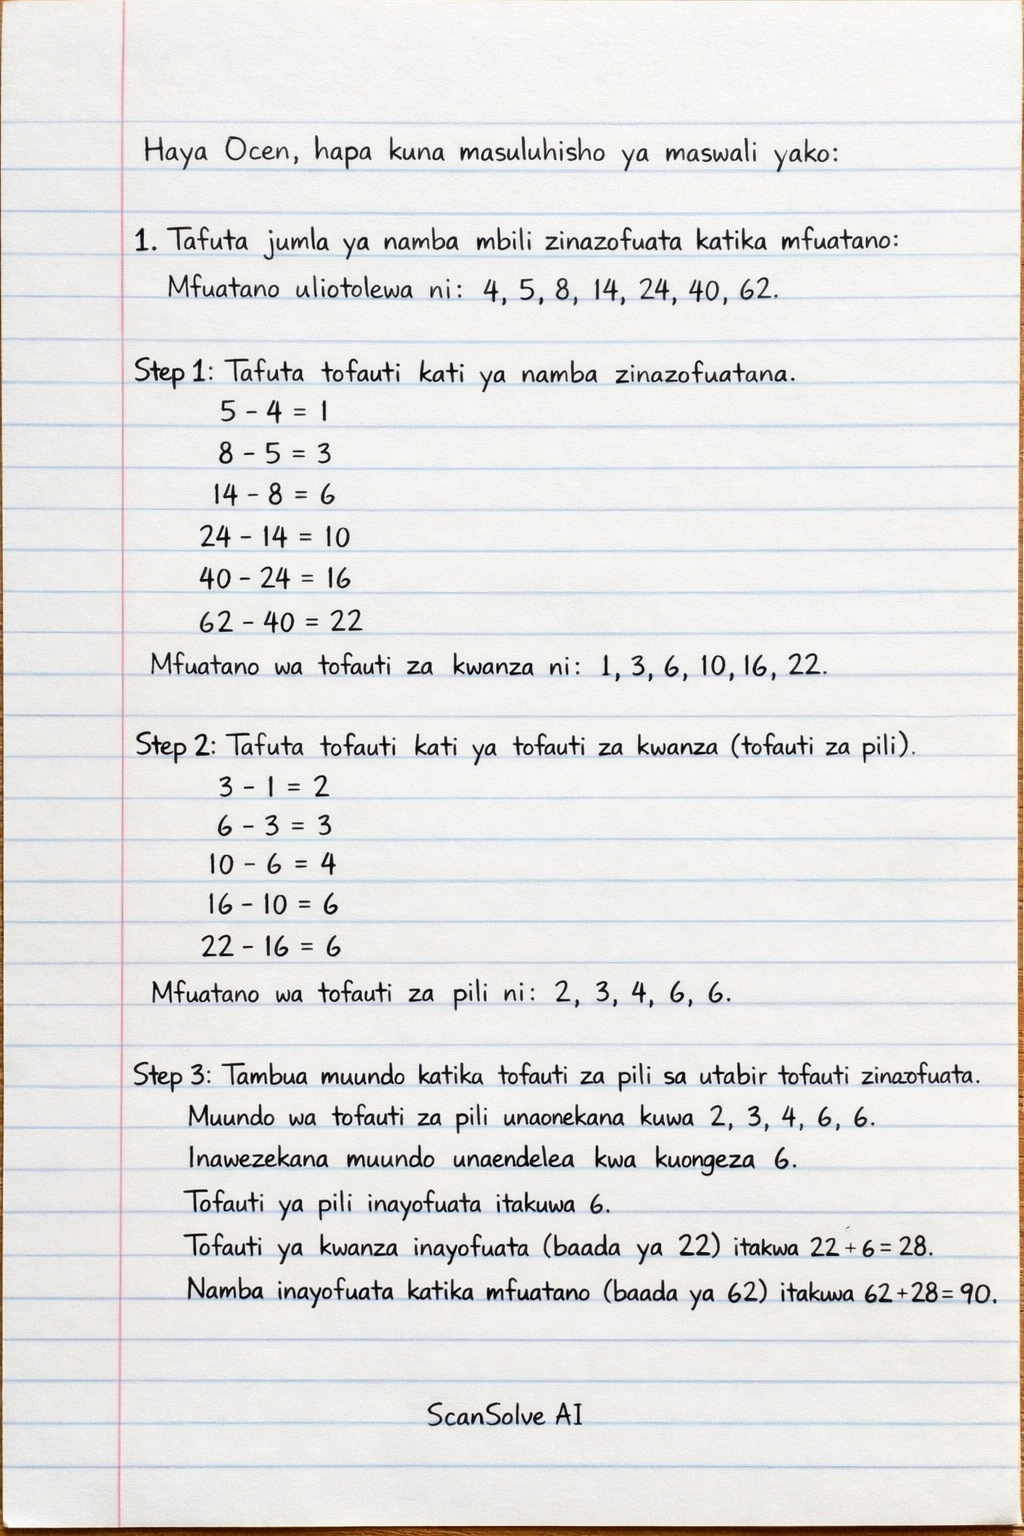 Haya Ocen, hapa kuna masuluhisho ya maswali yako:
1. Tafuta jumla ya namba mbili zinazofuata katika mfuatano:
Mfuatano uliotolewa ni: 4, 5, 8, 14, 24, 40, 62.
Step 1: Tafuta tofauti kati ya namba zinazofuatana.
5 - 4 = 1
8 - 5 = 3
14 - 8 = 6
24 - 14 = 10
40 - 24 = 16
62 - 40 = 22
Mfuatano wa tofauti za kwanza ni: 1, 3, 6, 10, 16, 22.
Step 2: Tafuta tofauti kati ya tofauti za kwanza (tofauti za pili).
3 - 1 = 2
6 - 3 = 3
10 - 6 = 4
16 - 10 = 6
22 - 16 = 6
Mfuatano wa tofauti za pili ni: 2, 3, 4, 6, 6.
Step 3: Tambua muundo katika tofauti za pili sa utabir tofauti zinazofuata.
Muundo wa tofauti za pili unaonekana kuwa 2, 3, 4, 6, 6.
Inawezekana muundo unaendelea kwa kuongeza 6.
Tofauti ya pili inayofuata itakuwa 6.
Tofauti ya kwanza inayofuata (baada ya 22) itakwa 22 + 6 = 28.
Namba inayofuata katika mfuatano (baada ya 62) itakuwa 62 + 28 = 90.
ScanSolve AI